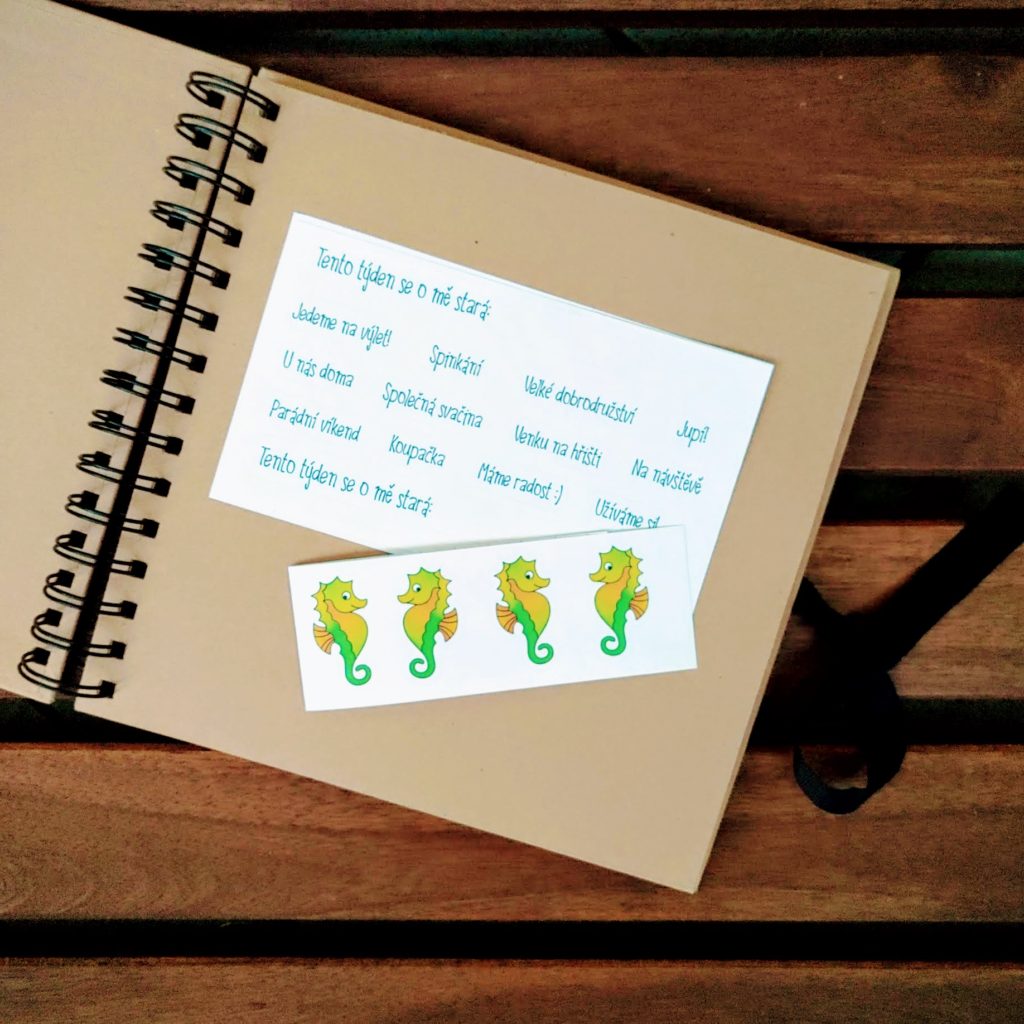 Tento týden se o mě stará:
Jedeme na výlet! Spinkání Velké dobrodružství Jupí!
U nás doma Společná svačina Venku na hřišti Na návštěvě
Parádní víkend Koupačka Máme radost :) Užíváme si!
Tento týden se o mě stará: